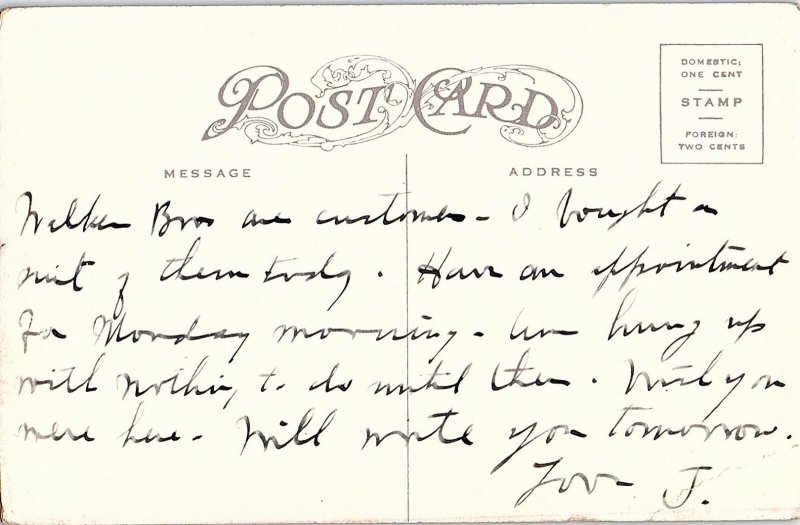 POST CARD
DOMESTIC:
ONE CENT
STAMP
FOREIGN:
TWO CENTS
MESSAGE
ADDRESS
Walker Bros are customers - I bought a
suit of them today. Have an appointment
for Monday morning - Am hung up
with nothing to do until then. Wish you
were here - Will write you tomorrow.
Love J.